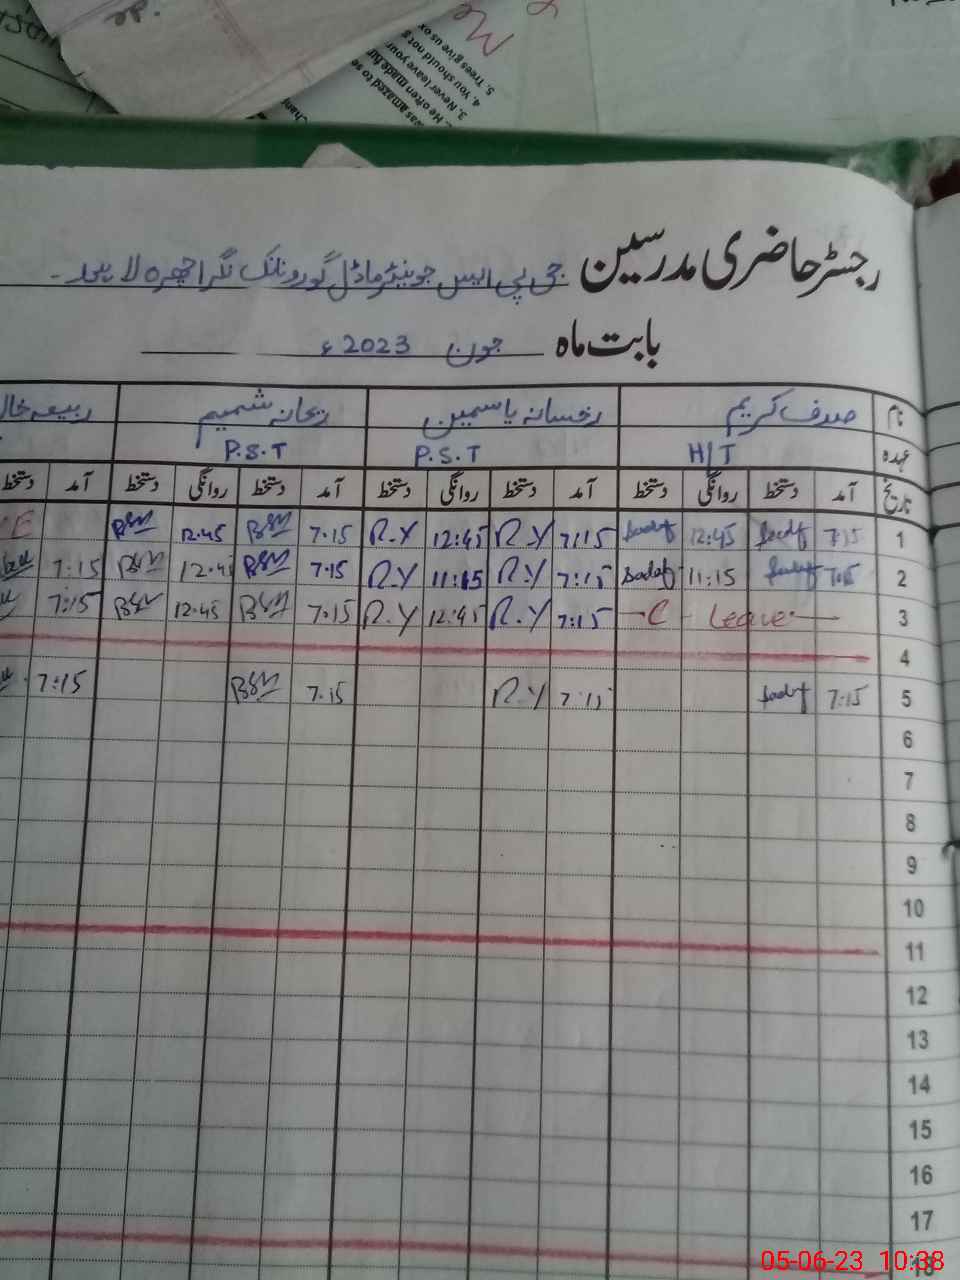 5. Trees give us ox
4. You should not s
3. Never leave your
2. He often made fun
was amazed to se
رجسٹر حاضری مدرسین جی پی ایس جونیئر ماڈل گورونانک نگر اچھرہ لاہور۔
بابت ماہ جون 2023ء
نام صدف کریم رخسانہ یاسمین ریحانہ شمیم ربیعہ
عہدہ H/T P.S.T P.S.T
تاریخ آمد دستخط روانگی دستخط آمد دستخط روانگی دستخط آمد دستخط روانگی دستخط آمد دستخط
1 7:15 Sadaf 12:45 Sadaf 7:15 R.Y 12:45 R.Y 7.15 12.45
2 7:15 Sadaf 11:15 Sadaf 7:15 R.Y 11:15 R.Y 7.15 12.45 7:15
3 C - Leave 7:15 R.Y 12:45 R.Y 7.15 12.45 7:15
4
5 7:15 Sadaf 7:15 R.Y 7.15 7:15
6
7
8
9
10
11
12
13
14
15
16
17
18
05-06-23 10:38